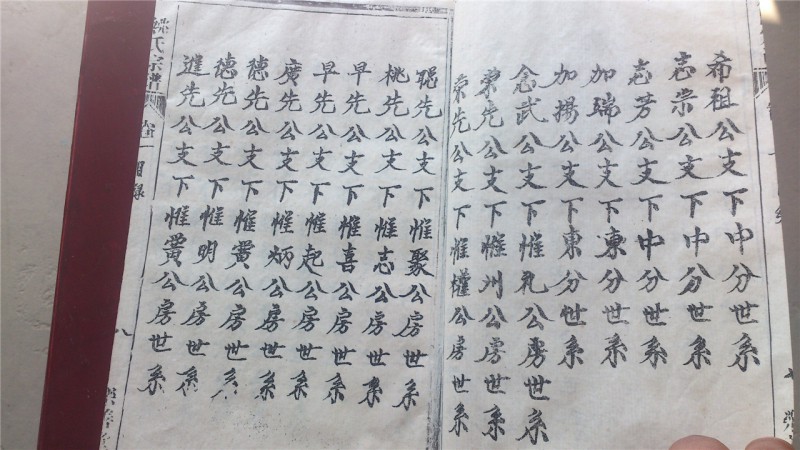 希祖公支下中分世系
志崇公支下中分世系
志芳公支下中分世系
加瑞公支下東分世系
加揚公支下東分世系
念武公支下惟礼公房世系
荣先公支下惟州公房世系
荣先公支下惟權公房世系
先公支下惟聚公房世系
桃先公支下惟志公房世系
早先公支下惟喜公房世系
早先公支下惟起公房世系
廣先公支下惟炳公房世系
德先公支下惟黌公房世系
德先公支下惟明公房世系
進先公支下惟黌公房世系
氏宗譜
卷一
目録
八